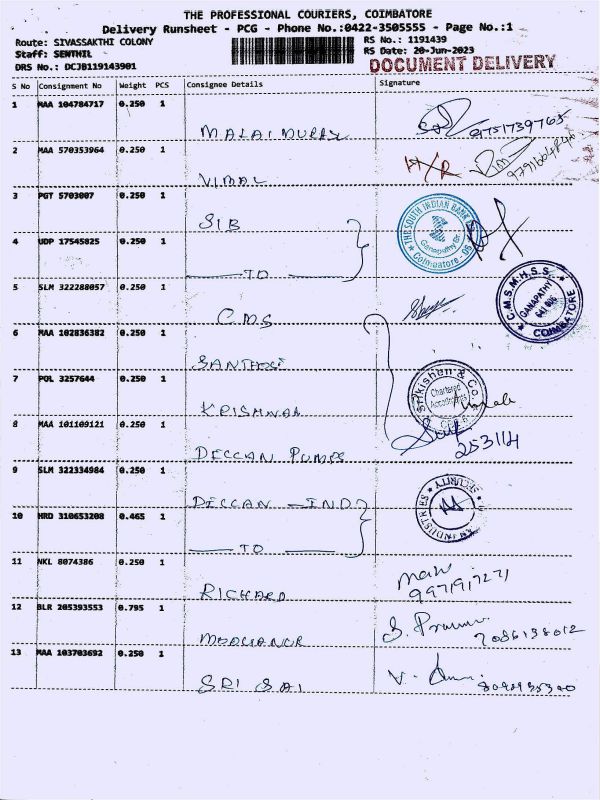 THE PROFESSIONAL COURIERS, COIMBATORE
Delivery Runsheet - PCG - Phone No.:0422-3505555 - Page No.:1
Route: SIVASSAKTHI COLONY RS No.: 1191439
Staff: SENTHIL RS Date: 20-Jun-2023
DRS No.: DCJB119143901 DOCUMENT DELIVERY
S No Consignment No Weight PCS Consignee Details Signature
1 MAA 104784717 0.250 1
MALAI MURRY 9751739765
2 MAA 570353964 0.250 1 H/R
VIMAL
3 PGT 5703007 0.250 1
SIB THE SOUTH INDIAN BANK Ganapathy Br. Coimbatore - 06
4 UDP 17545825 0.250 1
TO
5 SLM 322288057 0.250 1
C.M.S C.M.S.M.H.S.S. GANAPATHY COIMBATORE
6 MAA 102836382 0.250 1
SANTHOSE
7 POL 3257644 0.250 1
KRISHNAA Srikishen & Co. Chartered Accountants
8 MAA 101109121 0.250 1
DECCAN PUMPS 253114
9 SLM 322334984 0.250 1
DECCAN IND INDUSTRIES SECURITY
10 HRD 310653208 0.465 1
TO
11 NKL 8074386 0.250 1
RICHARD 9971917271
12 BLR 205393553 0.795 1
7086138012
13 MAA 103703692 0.250 1
SRI SAI